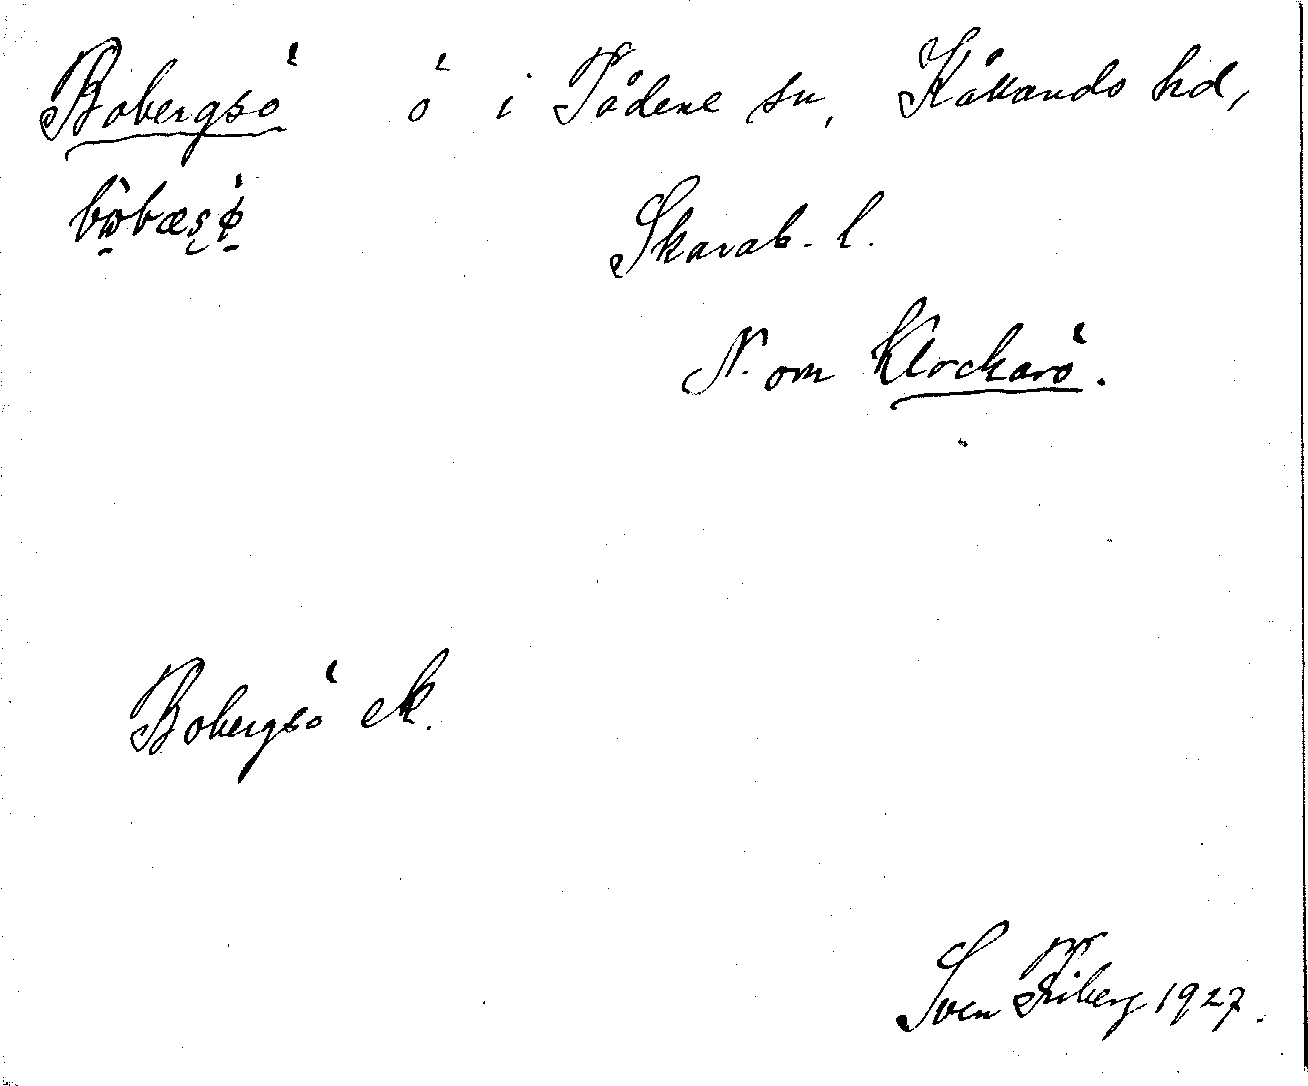 Bobergsö ö i Tådene sn, Kållands hd,
Skarab. l.
N. om Klockarö.
Bobergsö ek.
Sven Friberg 1927.